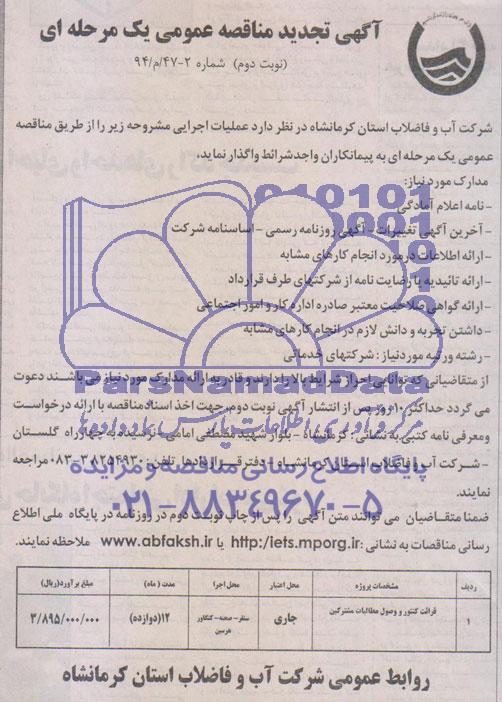 آگهی تجدید مناقصه عمومی یک مرحله ای
(نوبت دوم) شماره ۲-۴۷/م/۹۴
شرکت آب و فاضلاب استان کرمانشاه در نظر دارد عملیات اجرایی مشروحه زیر را از طریق مناقصه
عمومی یک مرحله ای به پیمانکاران واجد شرائط واگذار نماید.
مدارک مورد نیاز:
- نامه اعلام آمادگی
- آخرین آگهی تغییرات - آگهی روزنامه رسمی - اساسنامه شرکت
- ارائه اطلاعات در مورد انجام کارهای مشابه
- ارائه تائیدیه یا رضایت نامه از شرکتهای طرف قرارداد
- ارائه گواهی صلاحیت معتبر صادره اداره کار و امور اجتماعی
- داشتن تجربه و دانش لازم در انجام کارهای مشابه
- رشته و رتبه مورد نیاز: شرکتهای خدماتی
از متقاضیانی که توانایی احراز شرایط بالا را دارند و قادر به ارائه مدارک مورد نیاز می باشند دعوت
می گردد حداکثر ۱۰ روز پس از انتشار آگهی نوبت دوم جهت اخذ اسناد مناقصه با ارائه درخواست
و معرفی نامه کتبی به نشانی: کرمانشاه - بلوار شهید مصطفی امامی - نرسیده به چهارراه گلستان
- شرکت آب و فاضلاب استان کرمانشاه - دفتر قراردادها تلفن: ۳۸۲۵۴۹۳۰-۰۸۳ مراجعه
نمایند.
ضمنا متقاضیان می توانند متن آگهی را پس از چاپ نوبت دوم در روزنامه در پایگاه ملی اطلاع
رسانی مناقصات به نشانی: http:/iets.mporg.ir یا www.abfaksh.ir ملاحظه نمایند.
ردیف مشخصات پروژه محل اعتبار محل اجرا مدت (ماه) مبلغ برآورد(ریال)
۱ قرائت کنتور و وصول مطالبات مشترکین جاری سنقر - صحنه - کنگاور ۱۲(دوازده) ۳/۸۹۵/۰۰۰/۰۰۰
هرسین
روابط عمومی شرکت آب و فاضلاب استان کرمانشاه
ParsNamadData
مرکز فرآوری اطلاعات پارس نماد داده ها
پایگاه اطلاع رسانی مناقصه و مزایده
۰۲۱-۸۸۳۴۹۶۷۰-۵